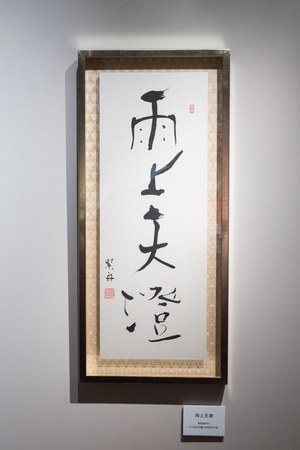 雨上天澄
紫舟
雨上天澄